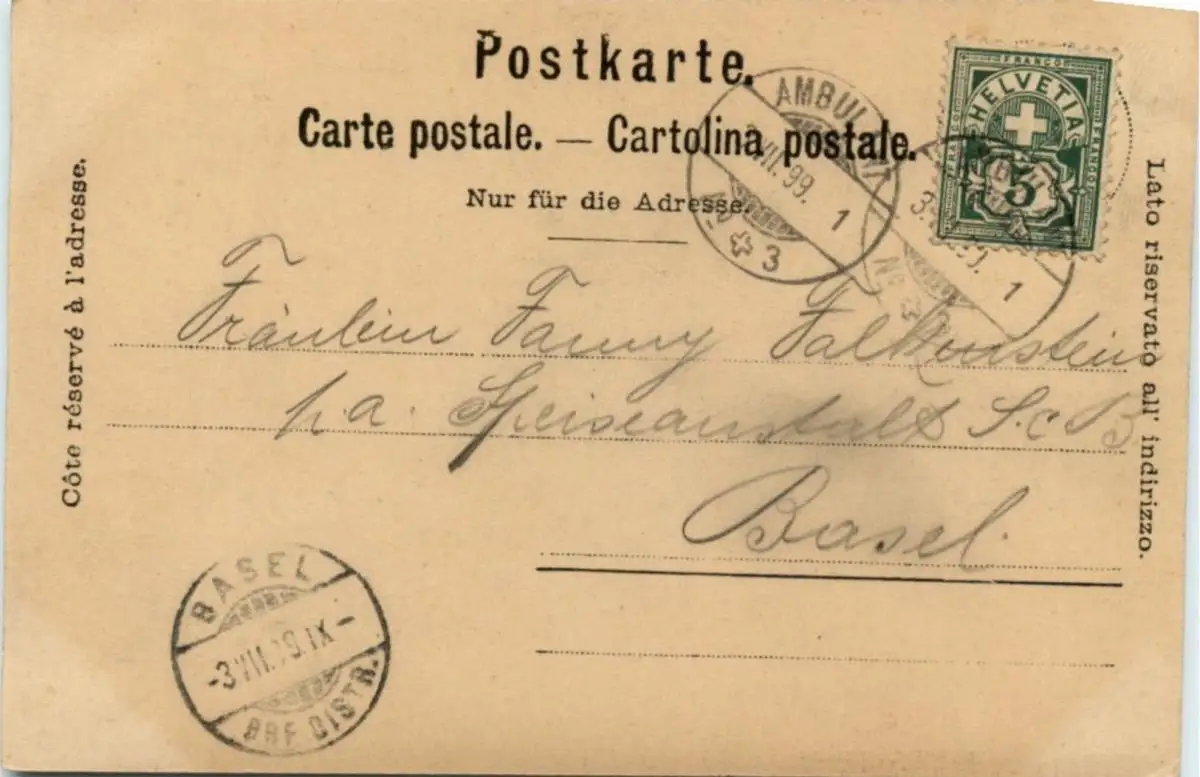 Postkarte.
Carte postale. — Cartolina postale.
Nur für die Adresse.
Côte réservé à l'adresse.
Lato riservato all' indirizzo.
FRANCO
FRANCO
FRANCO
HELVETIA
5
AMBULANT
VII. 99.
1
No 3
3.
1
No 3
Fräulein Fanny Falkenstein
p. a. Speiseanstalt S. c. B
Basel.
BASEL
-3 VII. 99 IX-
BRF. DISTR.